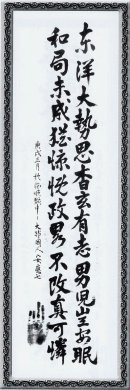 東洋大勢思杳玄有志男児豈安眠
和局未成猶慷慨政略不改真可憐
庚戌三月 於旅順獄中 大韓國人 安重根